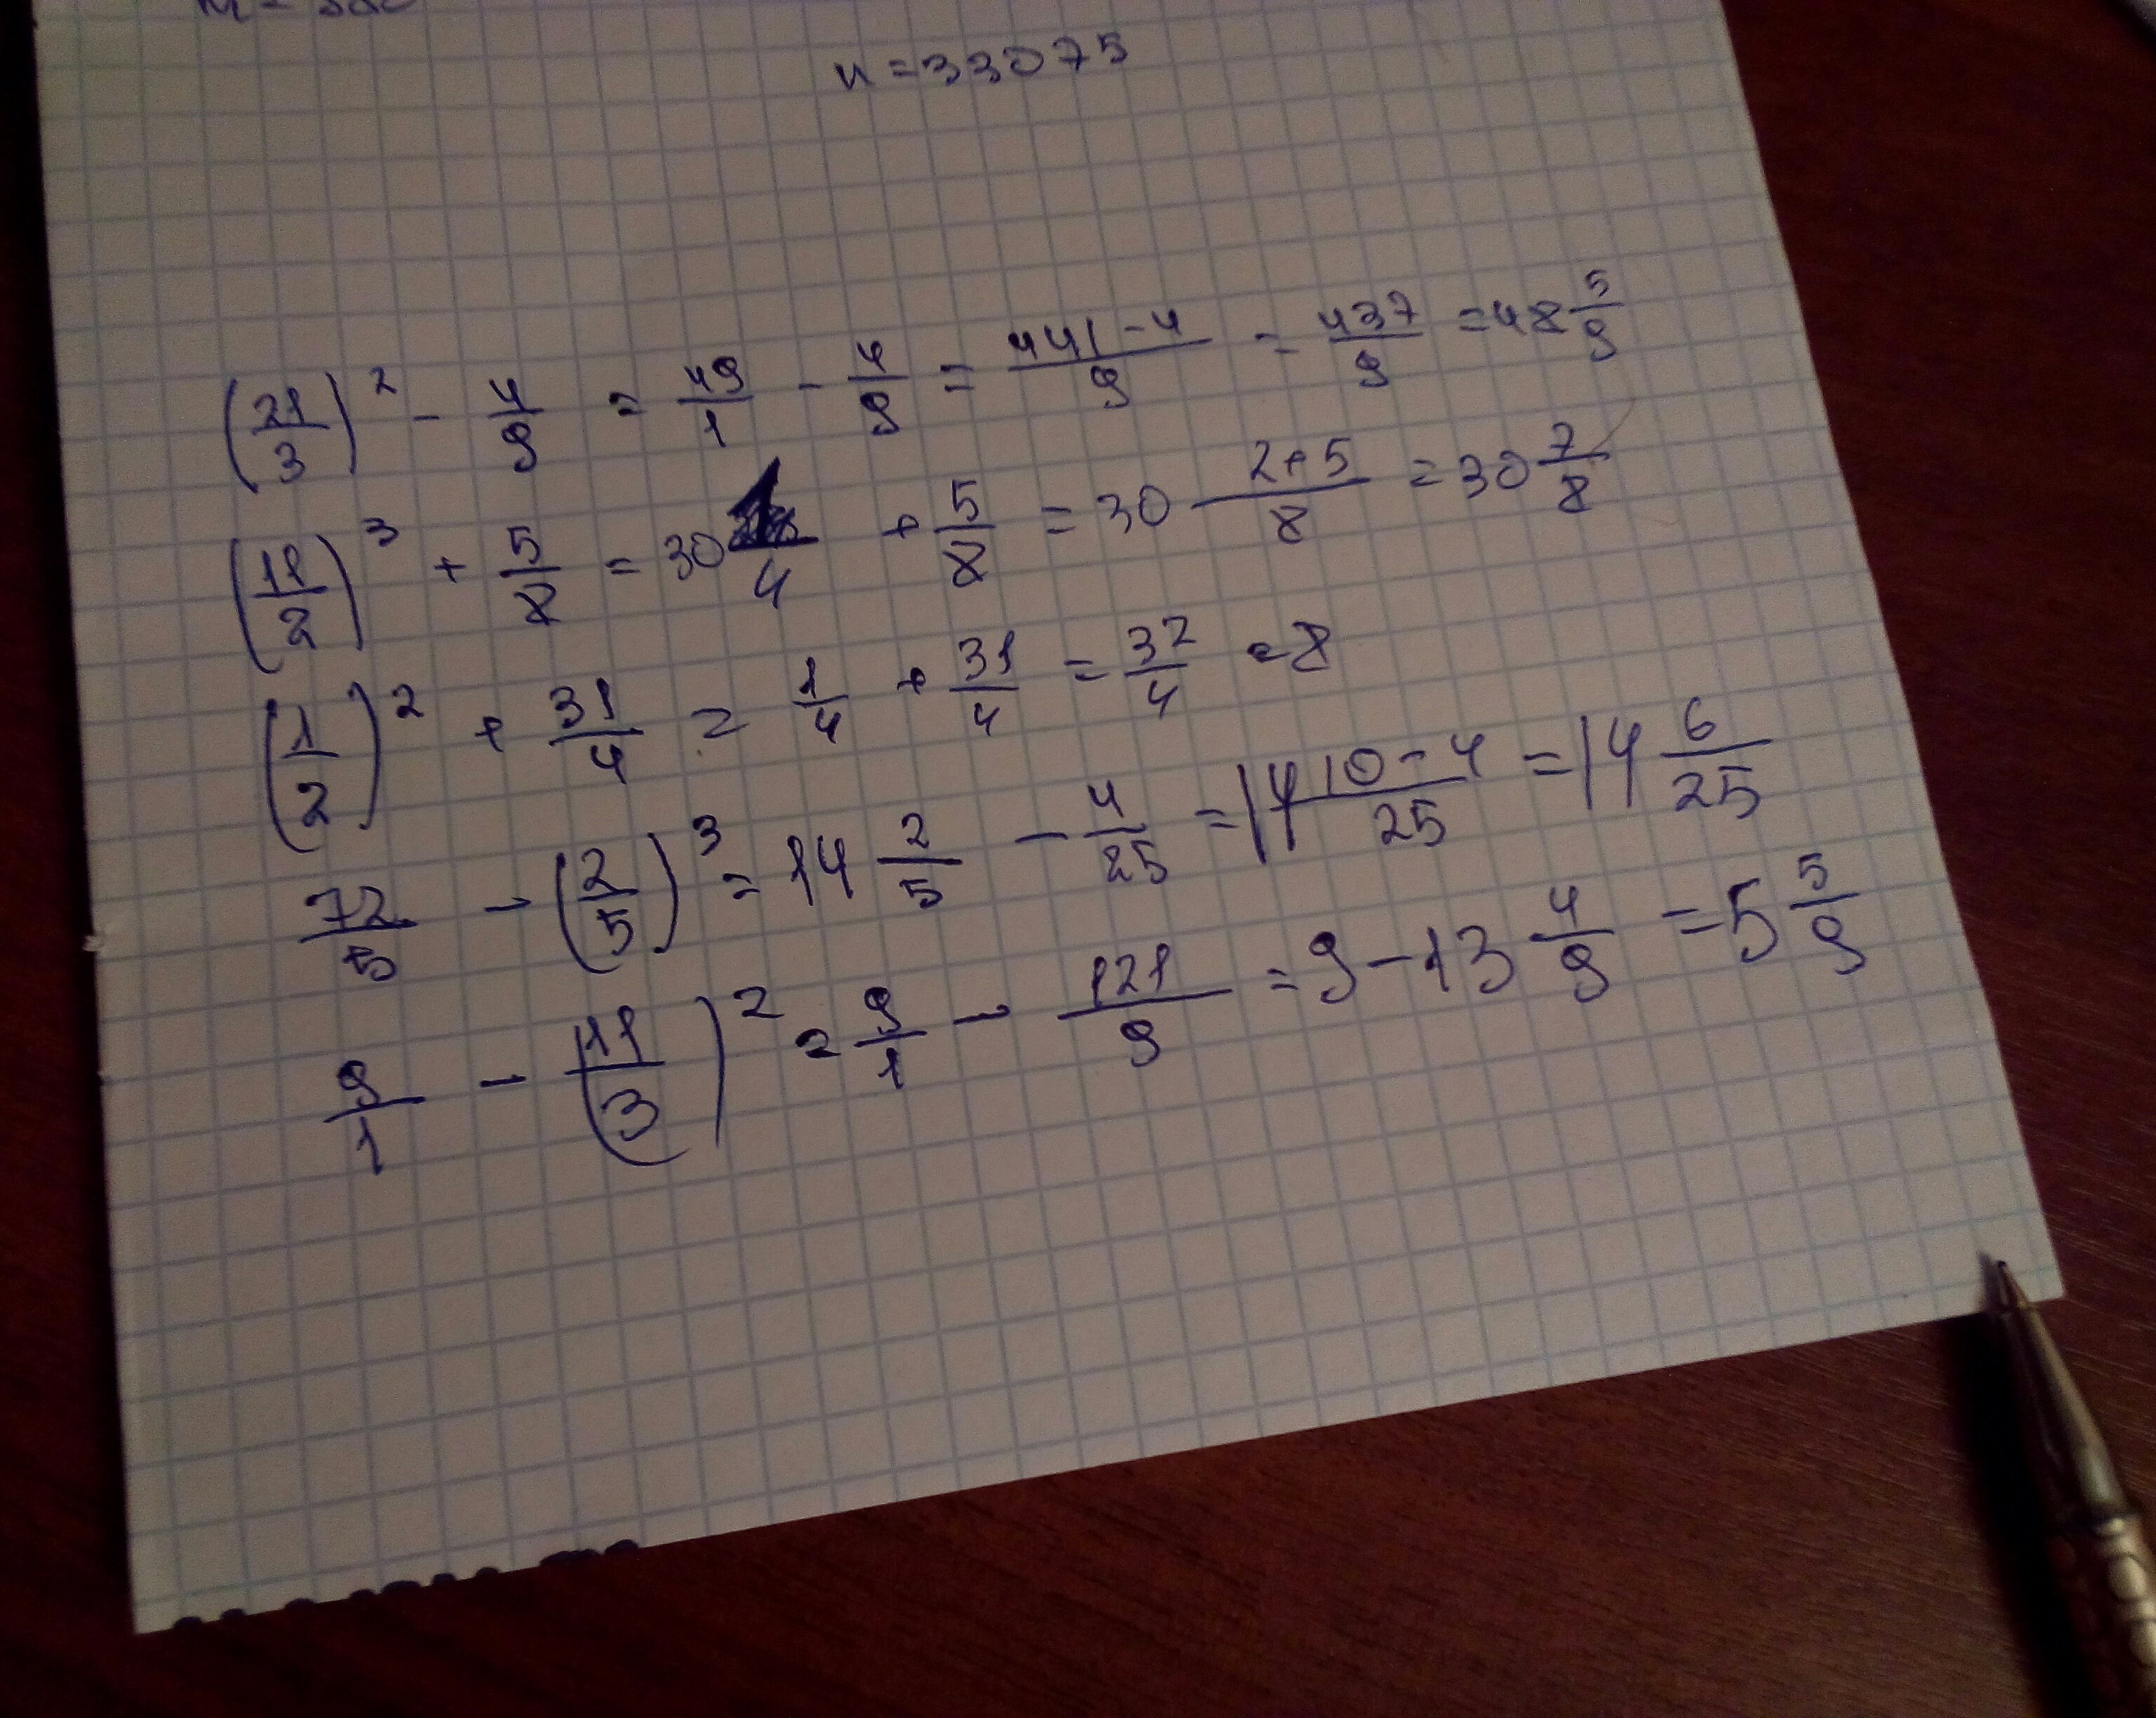 n = 33075
(21/3)² - 4/9 = 49/1 - 4/9 = (441-4)/9 = 437/9 = 48 5/9
(11/2)³ + 5/8 = 30 1/4 + 5/8 = 30 (2+5)/8 = 30 7/8
(1/2)² + 31/4 = 1/4 + 31/4 = 32/4 = 8
72/5 - (2/5)³ = 14 2/5 - 4/25 = 14 (10-4)/25 = 14 6/25
9/1 - (11/3)² = 9/1 - 121/9 = 9 - 13 4/9 = 5 5/9